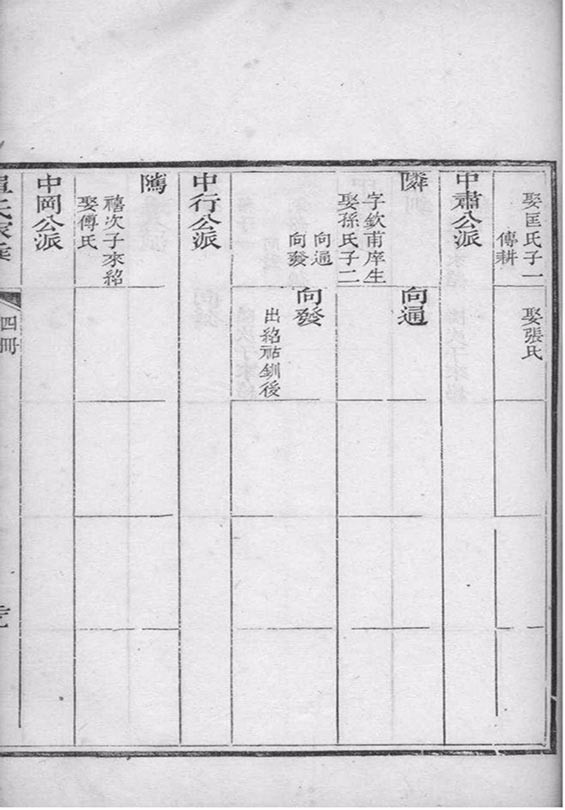 娶匡氏子一
傳耕
娶張氏
中肅公派
隣
向通
字欽甫庠生
娶孫氏子二
向通
向發
向發
出紹釧後
中行公派
禧次子來紹
娶傅氏
中岡公派
四冊